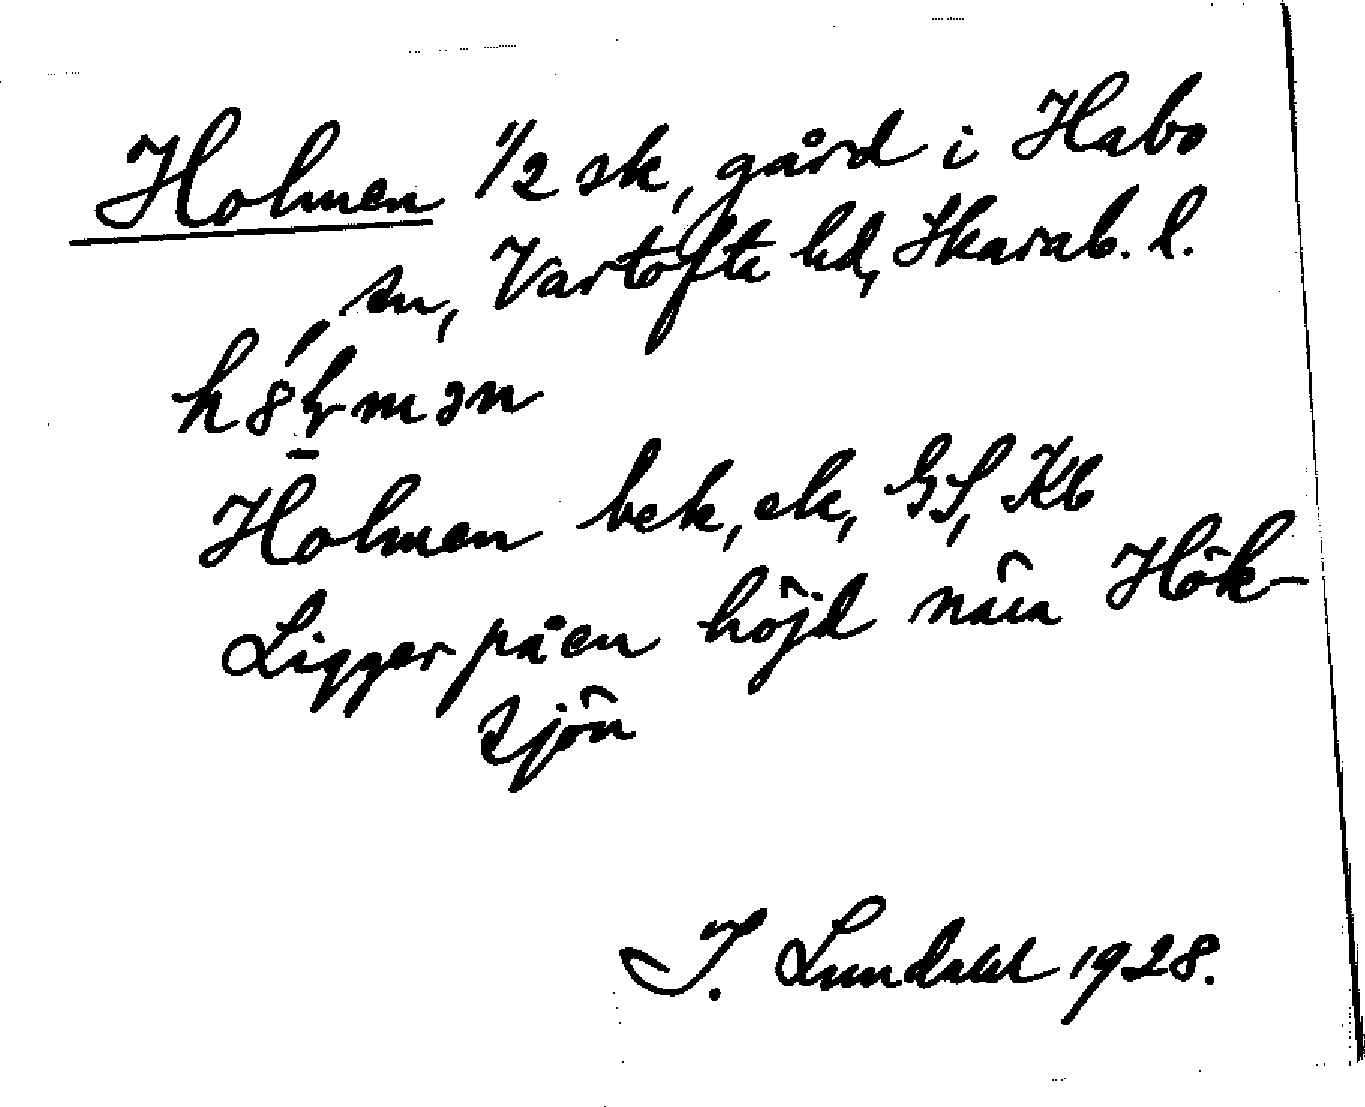 Holmen 1/2 sk, gård i Habo
sn, Vartofta hd, Skarab. l.
Holmen bek, ek, GS, Kb
Ligger på en höjd nära Hök-
sjön
I. Lundahl 1928.